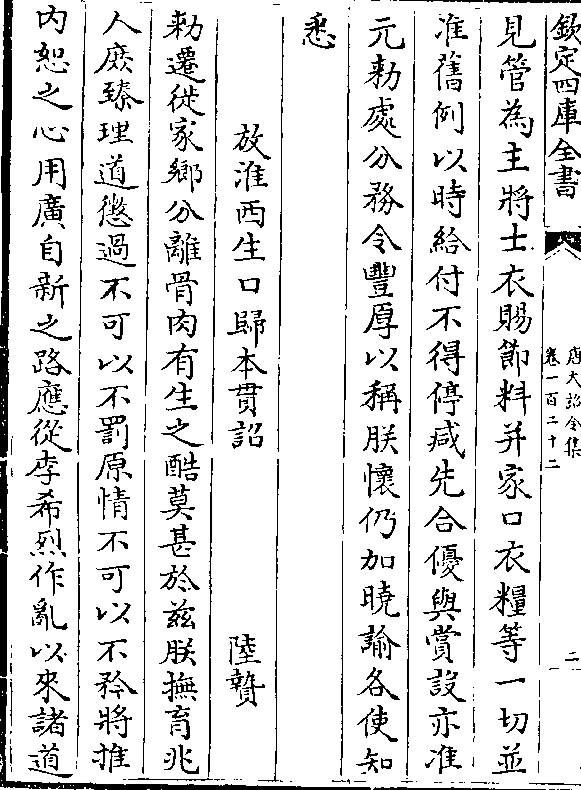 欽定四庫全書
唐大詔令集
卷一百二十二
二
見管為主將士衣賜節料并家口衣糧等一切並
准舊例以時給付不得停减先合優與賞設亦准
元勅處分務令豐厚以稱朕懷仍加曉諭各使知
悉
放淮西生口歸本貫詔 陸贄
勅遷徙家鄉分離骨肉有生之酷莫甚於兹朕撫育兆
人庻臻理道懲過不可以不罰原情不可以不矜將推
内恕之心用廣自新之路應從李希烈作亂以來諸道